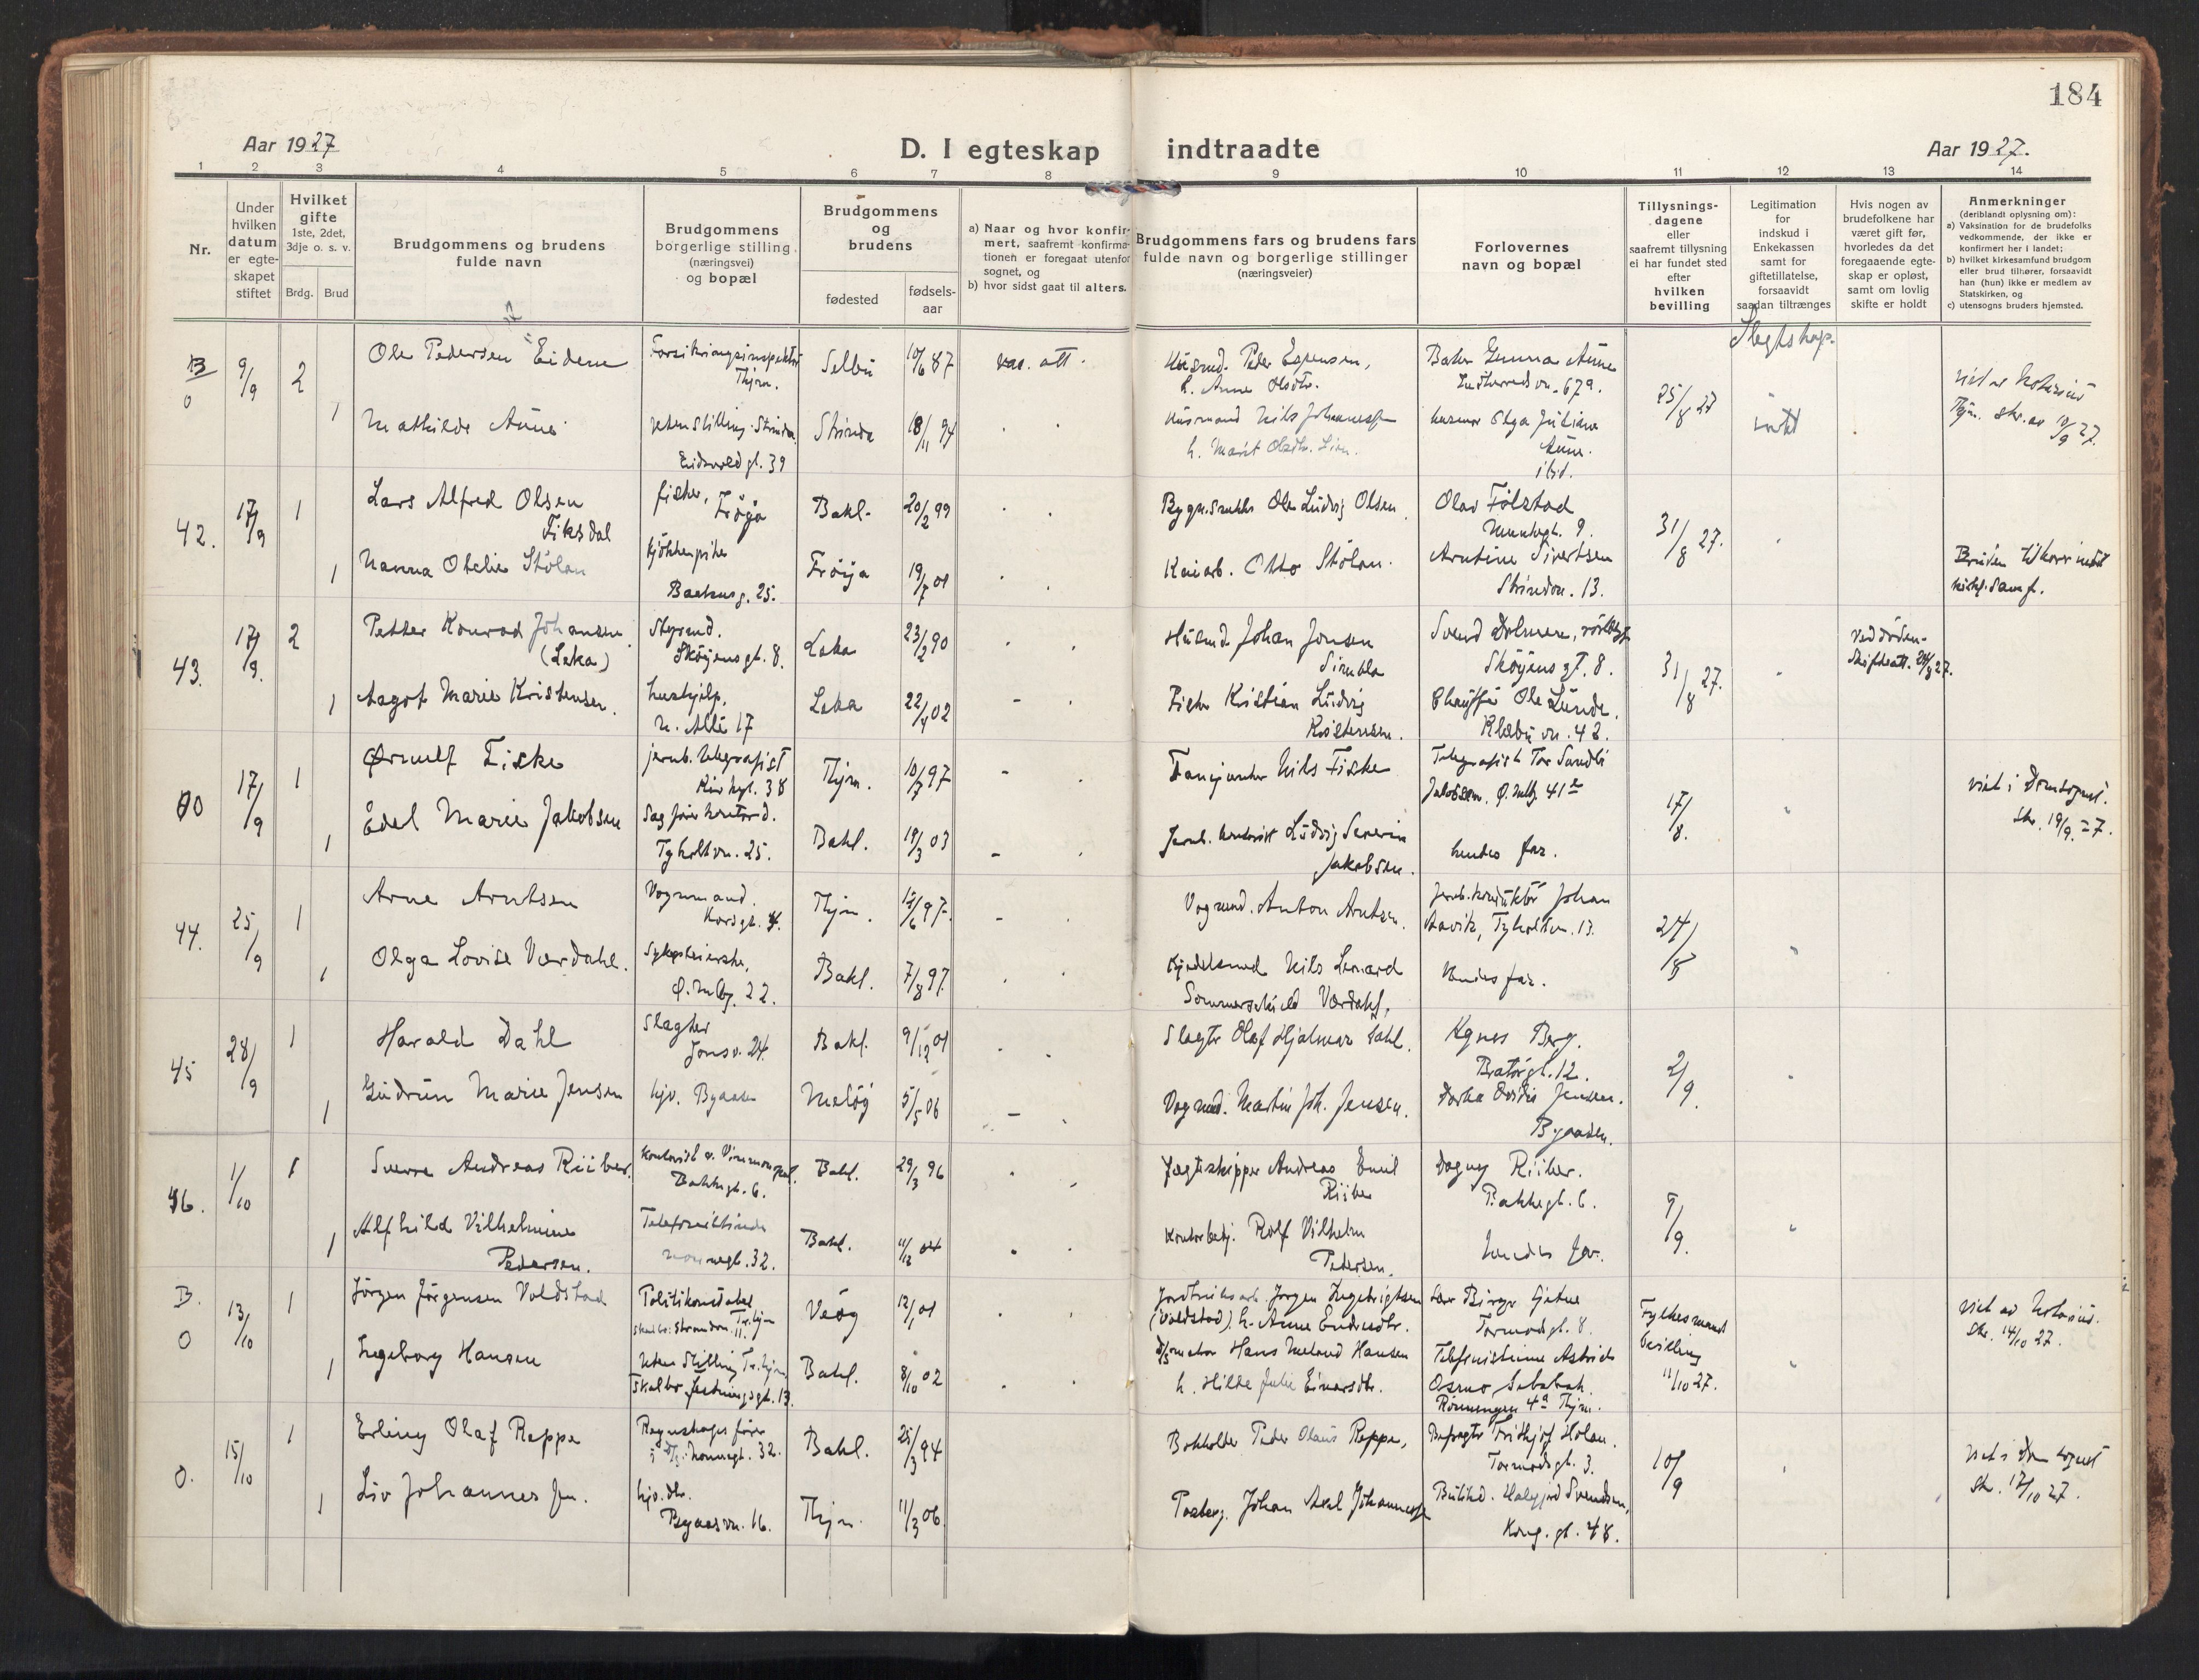 184
Aar 1927
D. I egteskap indtraadte
Aar 1927.
1 2 3 4 5 6 7 8 9 10 11 12 13 14
Nr.
Under
hvilken
datum
er egte-
skapet
stiftet
Hvilket
gifte
1ste, 2det,
3dje o. s. v.
Brdg. Brud
Brudgommens og brudens
fulde navn
Brudgommens
borgerlige stilling
(næringsvei)
og bopæl
Brudgommens
og
brudens
fødested
fødsels-
aar
a) Naar og hvor konfir-
mert, saafremt konfirma-
tionen er foregaat utenfor
sognet, og
b) hvor sidst gaat til alters.
Brudgommens fars og brudens fars
fulde navn og borgerlige stillinger
(næringsveier)
Forlovernes
navn og bopæl
Tillysnings-
dagene
eller
saafremt tillysning
ei har fundet sted
efter
hvilken
bevilling
Legitimation
for
indskud i
Enkekassen
samt for
giftetillatelse,
forsaavidt
saadan tiltrænges
Hvis nogen av
brudefolkene har
været gift før,
hvorledes da det
foregaaende egte-
skap er opløst,
samt om lovlig
skifte er holdt
Anmerkninger
(deriblandt oplysning om):
a) Vaksination for de brudefolks
vedkommende, der ikke er
konfirmert her i landet;
b) hvilket kirkesamfund brudgom
eller brud tilhører, forsaavidt
han (hun) ikke er medlem av
Statskirken, og
c) utensogns bruders hjemsted.
Slegtskap.
B
0
9/9
2
Ole Pedersen Eidem
Forsikringsinspektør
Thjm.
Selbu
10/6 87
vac. att.
Husmd. Peder Espensen,
h. Anne Olsdtr.
Baker Gunnar Aune
67a.
25/8 27
intet
viet av Notarius
Thjm. skr. av 10/9 27.
1
Mathilde Aune
uten stilling. Strinda
Eidsvoldgt. 39
Strinda
18/11 94
Husmand Nils Johannessen
h. Marit Olsdtr. Lien.
Olga Juliane
Aune.
ibid.
42.
17/9
1
Lars Alfred Olsen
Fiksdal
fisker, Frøya
Bakl.
20/2 99
Bygn.snekker Ole Ludvig Olsen
Olav Følstad
Munkegt. 9.
31/8 27.
1
Nanna Otelie Stølan
kjøkkenpike
Backusg. 25.
Frøya
19/7 01
Kaiarb. Otto Stølan.
Arntine Sivertsen
Strindvn. 13.
Bruden tilhører intet
kirkl. samf.
43.
17/9.
2
Petter Konrad Johansen
(Leka)
Styrmd.
Skøyensgt. 8.
Leka
23/2 90
Husmd. Johan Jonsen
Svend Dolmen, rørlegger
Skøyensgt. 8.
31/8 27.
Ved døden-
Skifteatt. 24/8 27.
1
Aagot Marie Kristensen.
hushjelp,
n. Allé 17
Leka
22/4 02
Fisker Kristian Ludvig
Kristensen.
Chauffør Ole Lunde.
Klæbuvn. 42.
00
17/9
1
Ørnulf Fiske
jernb. telegrafist
Kirkegt. 38
Thjm.
10/3 97
Nils Fiske
Telegrafist Tor Sandli
Jakobsen. Ø. Mllbg. 41
17/8.
viet i Domsognet.
Skr. 19/9 27.
1
Edel Marie Jakobsen
Tyholtvn. 25.
Bakl.
19/3 03
Jernb. kontorist Ludvig Severin
Jakobsen.
hendes far.
44.
25/9
1
Arne Arntsen
Vognmand.
Korsgt. 4.
Thjm.
Vognmd. Anton Arntsen.
Jernb. konduktør Johan
Aavik, Tyholtvn. 13.
24/8
1
Olga Lovise Værdahl.
Sykepleierske,
Ø. Mllbg. 22.
Bakl.
7/8 97.
Kjedelsmed Nils Lenard
Sommerschield Værdahl,
hendes far.
45
28/9
1
Harald Dahl
Slagter
Jonsv. 24.
Bakl.
9/12 01
Slagter Olaf Hjalmar Dahl.
Agnes Berg.
Bratørgt. 12.
2/9.
1
Gudrun Marie Jensen
hjv. Byaasen
Meløy
5/5 06
Vognmd. Martin Joh. Jensen.
Dorthea Jensen.
Byaasen.
46.
1/10
1
Sverre Andreas Riiber
Kontorist v. Vinmonopol.
Bakkegt. 6.
Bakl.
29/3 96
Jægteskipper Andreas Emil
Riiber
Dagny Riiber.
Bakkegt. 6.
9/9.
1
Alfhild Vilhelmine
Pedersen.
Telefonistinde
Nonnegt. 32.
Bakl.
11/12 04
Kontorbetj. Rolf Vilhelm
Pedersen.
hendes far.
B.
0
13/10
1
Jørgen Jørgensen Voldstad
Politikonstabel
Tr.hjm
Strandvn. 11.
Veøy
12/1 01
Jordbruksarb. Jørgen Ingebrigtsen
(Voldstad). h. Anne Endresdtr.
Birger Gjetne
Tormodsgt. 8.
Fylkesmand
bevilling
11/10 27.
viet av Notarius.
Skr. 14/10 27.
1
Ingeborg Hansen
Uten stilling Tr.hjm
Skalbo: Festningsgt. 13.
Bakl.
8/10 02
Hans Hansen
h. Hilda Julie Einarsdtr.
Telefonistinne Astrid
Rønningen 4a Thjm.
0.
15/10
1
Erling Olaf Reppe
Regnskapsfører
Nonnegt. 32.
Bakl.
25/3 94
Bokholder Peder Olaus Reppe,
Befragter Fridthjof Holan.
Tormodsgt. 3.
10/9
viet i Domsognet
Skr. 17/10 27.
1
Liv Johannessen.
hjv. dtr.
Byaasvn. 16.
Thjm.
11/3 06.
Johan Axel Johannessen
Svendsen,
Kong. gt. 48.